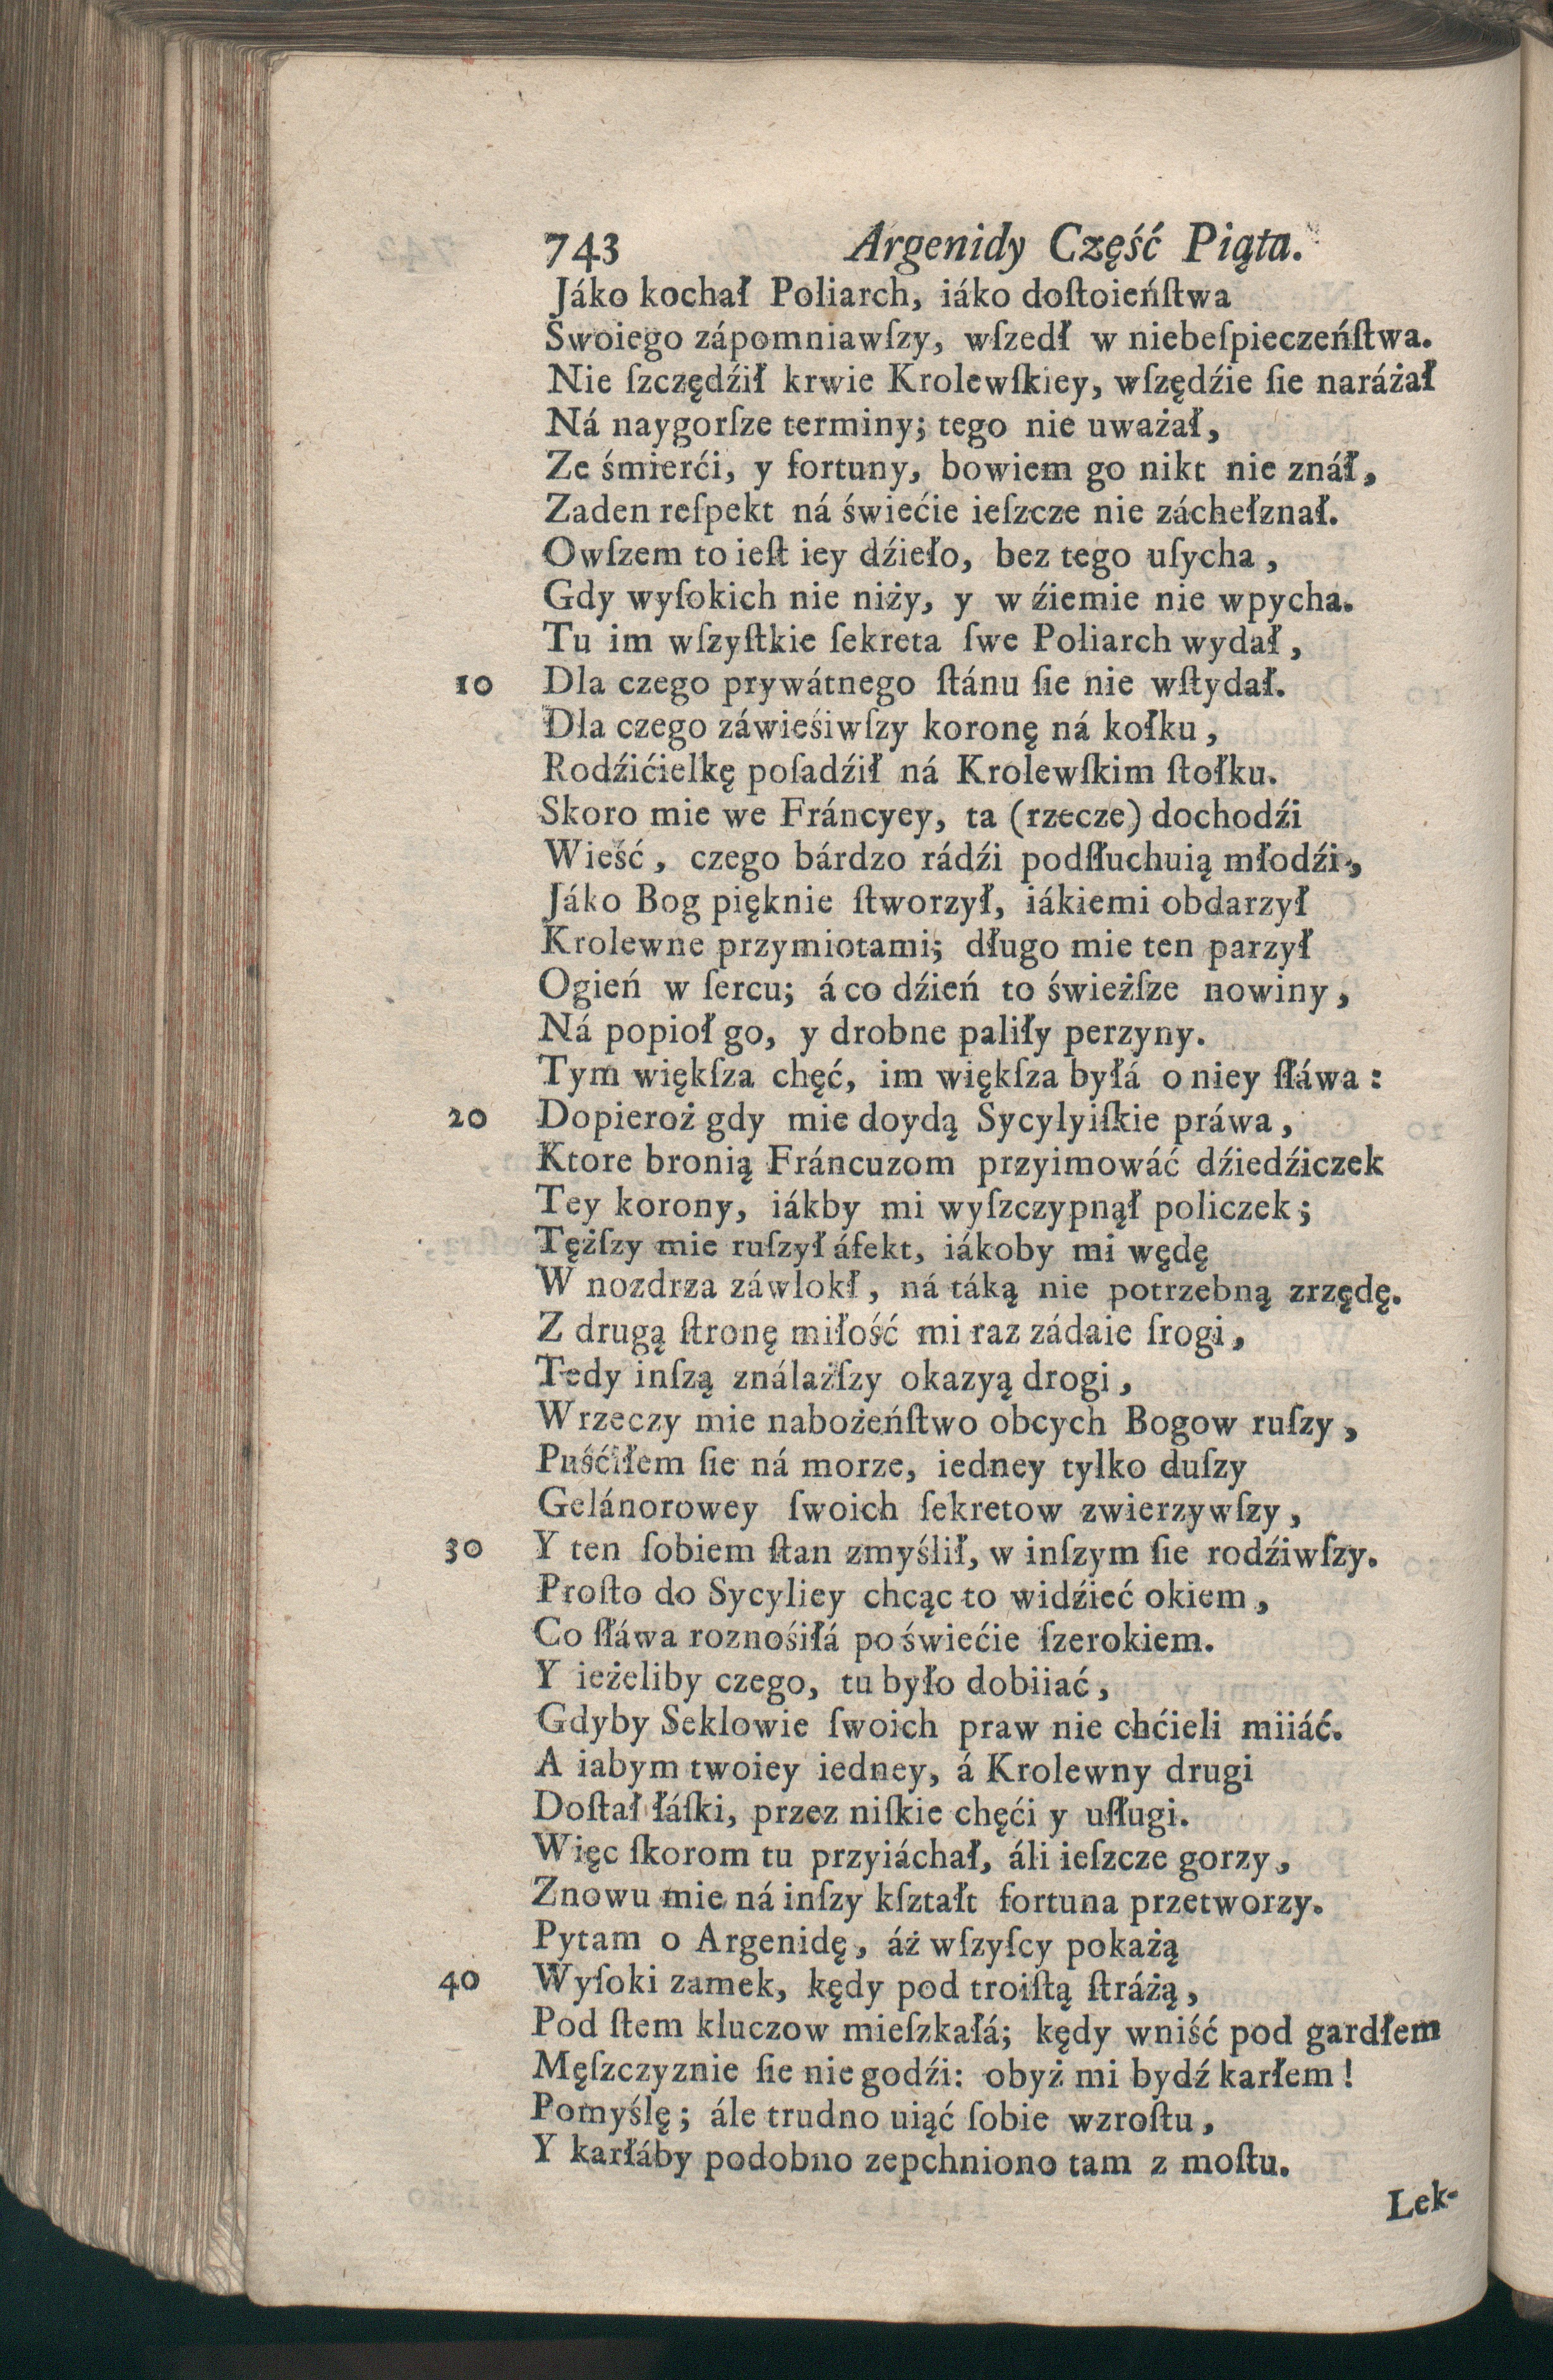 743 Argenidy Część Piąta.
Jáko kochał Poliarch, iáko doſtoieńſtwa
Swoiego zápomniawſzy, wſzedł w niebeſpieczeńſtwa.
Nie ſzczędźił krwie Krolewſkiey, wſzędźie ſie narážał
Ná naygorſze terminy; tego nie uważał,
Ze śmierći, y fortuny, bowiem go nikt nie znáł,
Zaden reſpekt ná świećie ieſzcze nie záchełznał.
Owſzem to ieſt iey dźieło, bez tego uſycha,
Gdy wyſokich nie niży, y w źiemie nie wpycha.
Tu im wſzyſtkie ſekreta ſwe Poliarch wydał,
10 Dla czego prywátnego ſtánu ſie nie wſtydał.
Dla czego záwieśiwſzy koronę ná kołku,
Rodźićielkę poſadźił ná Krolewſkim ſtołku.
Skoro mie we Fráncyey, ta (rzecze) dochodźi
Wieść, czego bárdzo rádźi podſłuchuią młodźi,
Jáko Bog pięknie ſtworzył, iákiemi obdarzył
Krolewne przymiotami; długo mie ten parzył
Ogień w ſercu; á co dźień to świeżſze nowiny,
Ná popioł go, y drobne paliły perzyny.
Tym więkſza chęć, im więkſza byłá o niey ſłáwa:
20 Dopieroż gdy mie doydą Sycylyiſkie práwa,
Ktore bronią Fráncuzom przyimowáć dźiedźiczek
Tey korony, iákby mi wyſzczypnął policzek;
Tężſzy mie ruſzył áfekt, iákoby mi wędę
W nozdrza záwlokł, ná táką nie potrzebną zrzędę.
Z drugą ſtronę miłość mi raz zádaie ſrogi,
Tedy inſzą ználażſzy okazyą drogi,
Wrzeczy mie nabożeńſtwo obcych Bogow ruſzy,
Puśćiłem ſie ná morze, iedney tylko duſzy
Gelánorowey ſwoich ſekretow zwierzywſzy,
30 Y ten ſobiem ſtan zmyślił, w inſzym ſie rodźiwſzy.
Proſto do Sycyliey chcąc to widźieć okiem,
Co ſłáwa roznośiłá po świećie ſzerokiem.
Y ieżeliby czego, tu było dobiiać,
Gdyby Seklowie ſwoich praw nie chćieli miiáć.
A iabym twoiey iedney, á Krolewny drugi
Doſtał łáſki, przez niſkie chęći y uſługi.
Więc ſkorom tu przyiáchał, áli ieſzcze gorzy,
Znowu mie ná inſzy kſztałt fortuna przetworzy.
Pytam o Argenidę, áż wſzyſcy pokażą
40 Wyſoki zamek, kędy pod troiſtą ſtráżą,
Pod ſtem kluczow mieſzkałá; kędy wniść pod gardłem
Męſzczyznie ſie nie godźi: obyż mi bydź karłem!
Pomyślę; ále trudno uiąć ſobie wzroſtu,
Y karłáby podobno zepchniono tam z moſtu.
Lek-